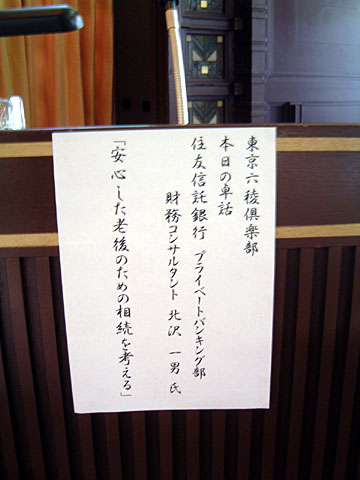 東京六稜倶楽部
本日の卓話
住友信託銀行 プライベートバンキング部
財務コンサルタント 北沢 一男 氏
「安心した老後のための相続を考える」